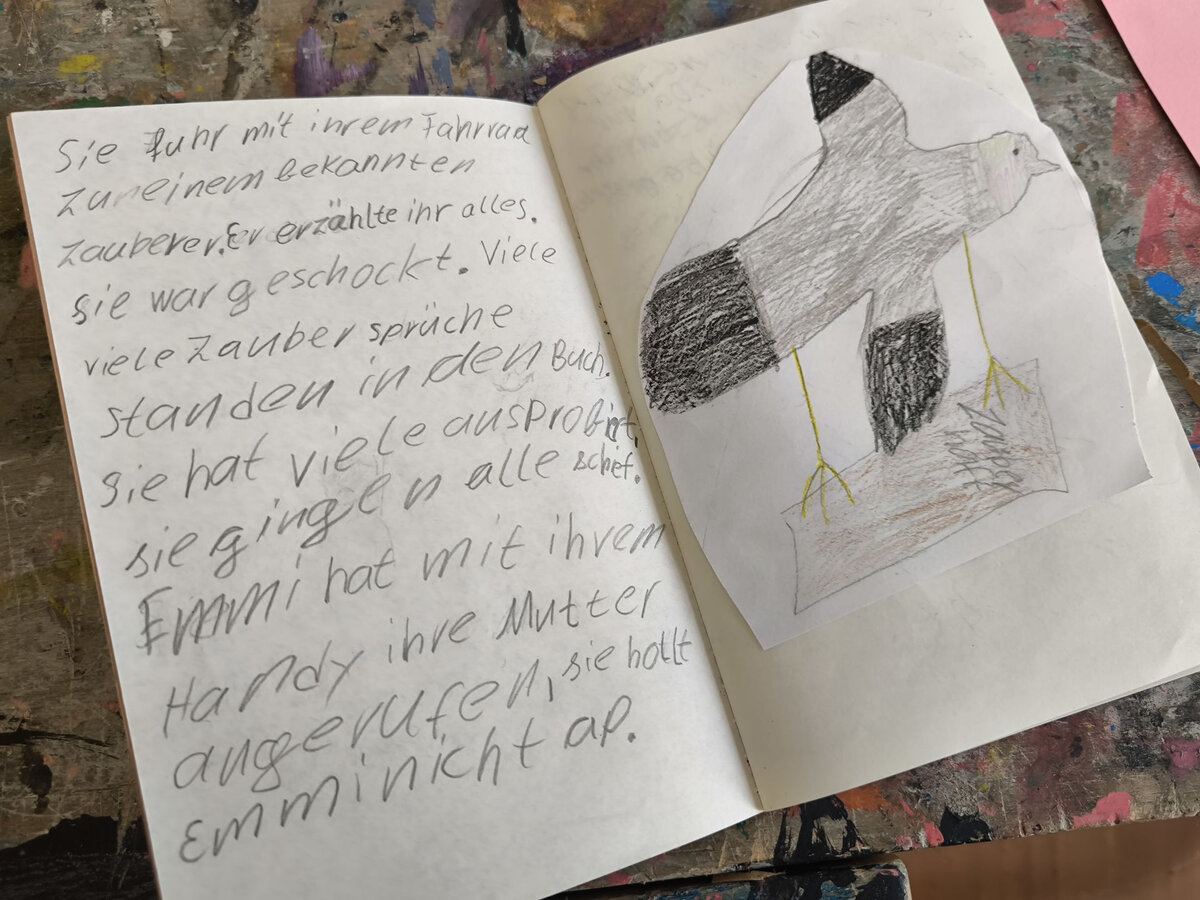 Sie fuhr mit ihrem Fahrrad
zu einem bekannten
Zauberer. Er erzählte ihr alles.
Sie war geschockt. Viele
viele Zauber sprüche
standen in den Buch.
Sie hat viele ausprobirt,
sie gingen alle schif.
Emmi hat mit ihrem
Handy ihre Mutter
angerufen, sie hollt
Emmi nicht ap.
Zauber